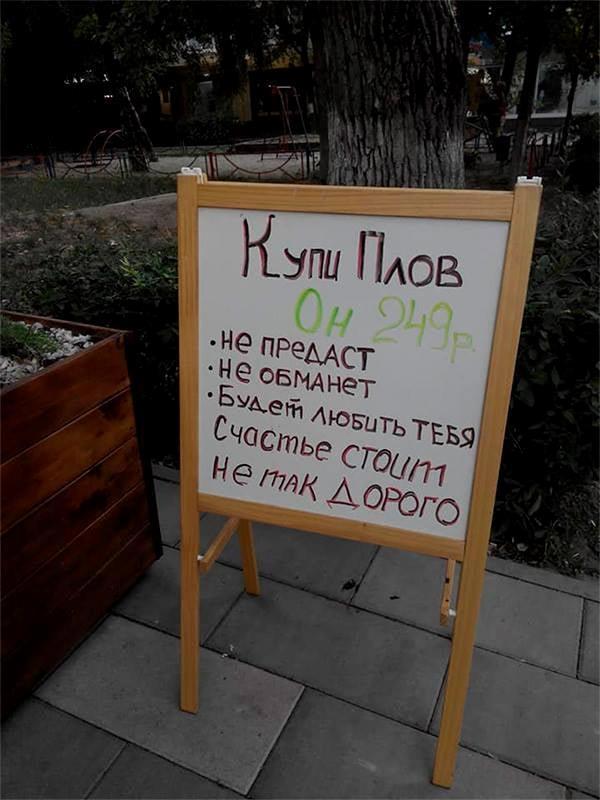 Купи Плов
Он 249р.
• не предаст
• не обманет
• Будет любить тебя
Счастье стоит
не так дорого